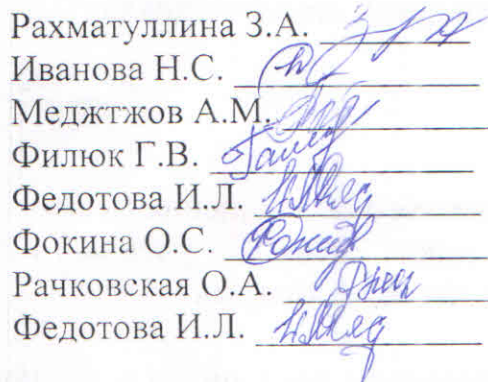 Рахматуллина З.А.
Иванова Н.С.
Меджтжов А.М.
Филюк Г.В.
Федотова И.Л.
Фокина О.С.
Рачковская О.А.
Федотова И.Л.